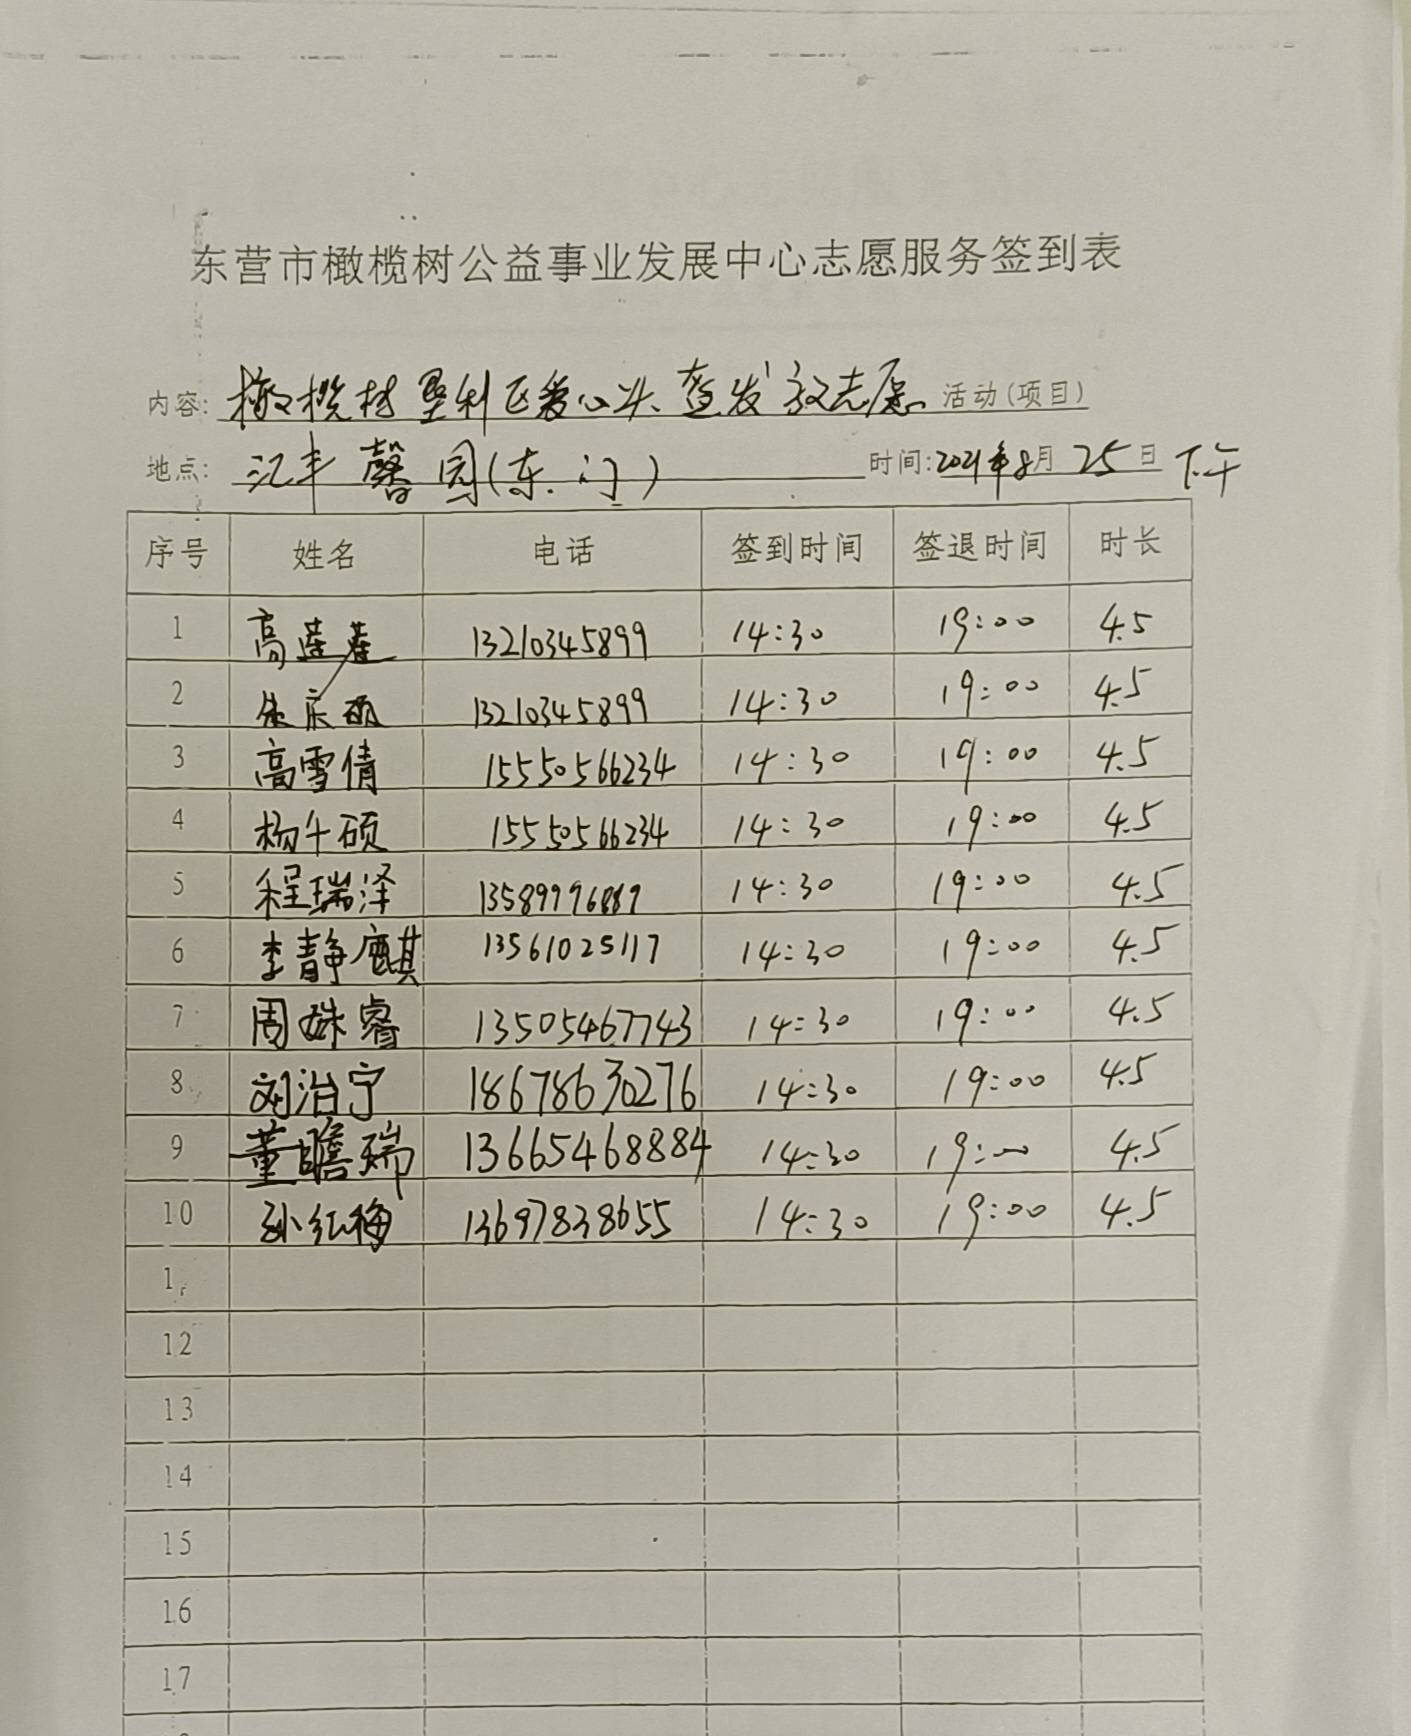 东营市橄榄树公益事业发展中心志愿服务签到表
内容: 橄榄树垦利区爱心 发放志愿 活动(项目)
地点: 汇丰馨园(东门) 时间:2021年8月25日下午
序号 姓名 电话 签到时间 签退时间 时长
1 高莲莲 13210345899 14:30 19:00 4.5
2 13210345899 14:30 19:00 4.5
3 高雪倩 15550566234 14:30 19:00 4.5
4 杨千硕 15550566234 14:30 19:00 4.5
5 程瑞泽 14:30 19:00 4.5
6 李静麒 13561025117 14:30 19:00 4.5
7 周姝睿 13505467743 14:30 19:00 4.5
8 刘治宁 18678630276 14:30 19:00 4.5
9 董瞻瑞 13665468884 14:30 19:00 4.5
10 孙红梅 13697838655 14:30 19:00 4.5
1
12
13
14
15
16
17